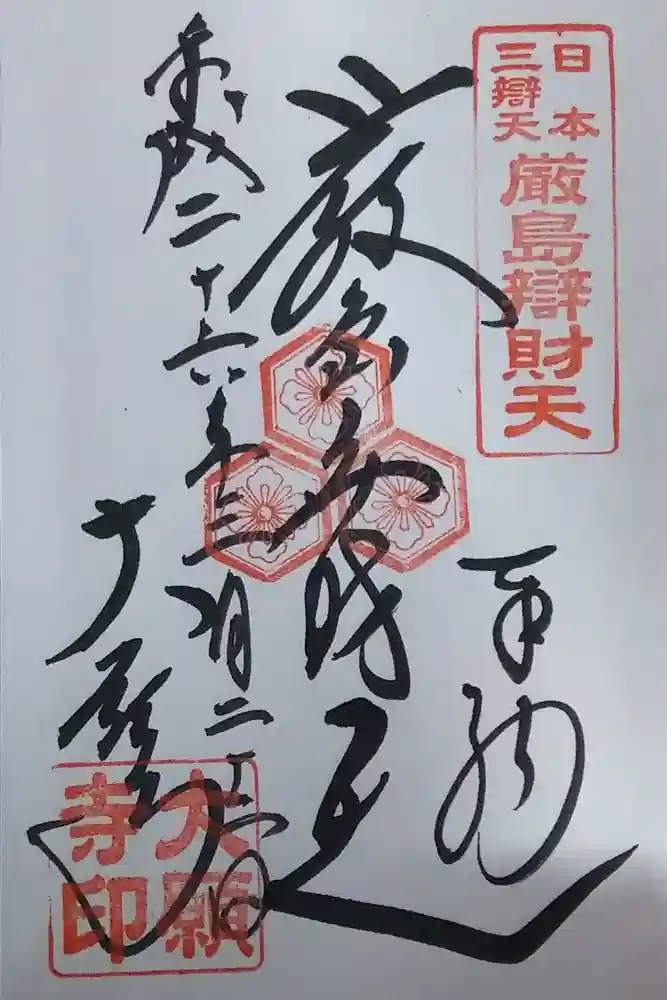 日本
三辯天
厳島辯財天
奉納
厳島弁財天
平成二十六年三月二十二日
大願寺
大願
寺印